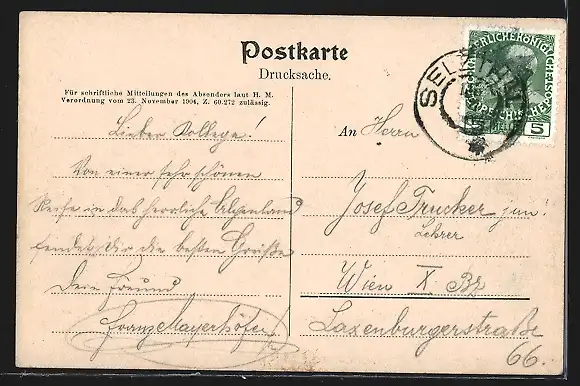 Postkarte
Drucksache.
Für schriftliche Mitteilungen des Absenders laut H. M.
Verordnung vom 23. November 1904, Z. 60.272 zulässig.
Lieber Kollege!
Von einer sehr schönen
Reise in das herrliche Alpenland
sendet dir die besten Grüße
Dein Freund
Franz Mayerhöfer
5
An Herrn
Josef Trucker jun.
Lehrer
Wien X Bz
Laxenburgerstraße
66.